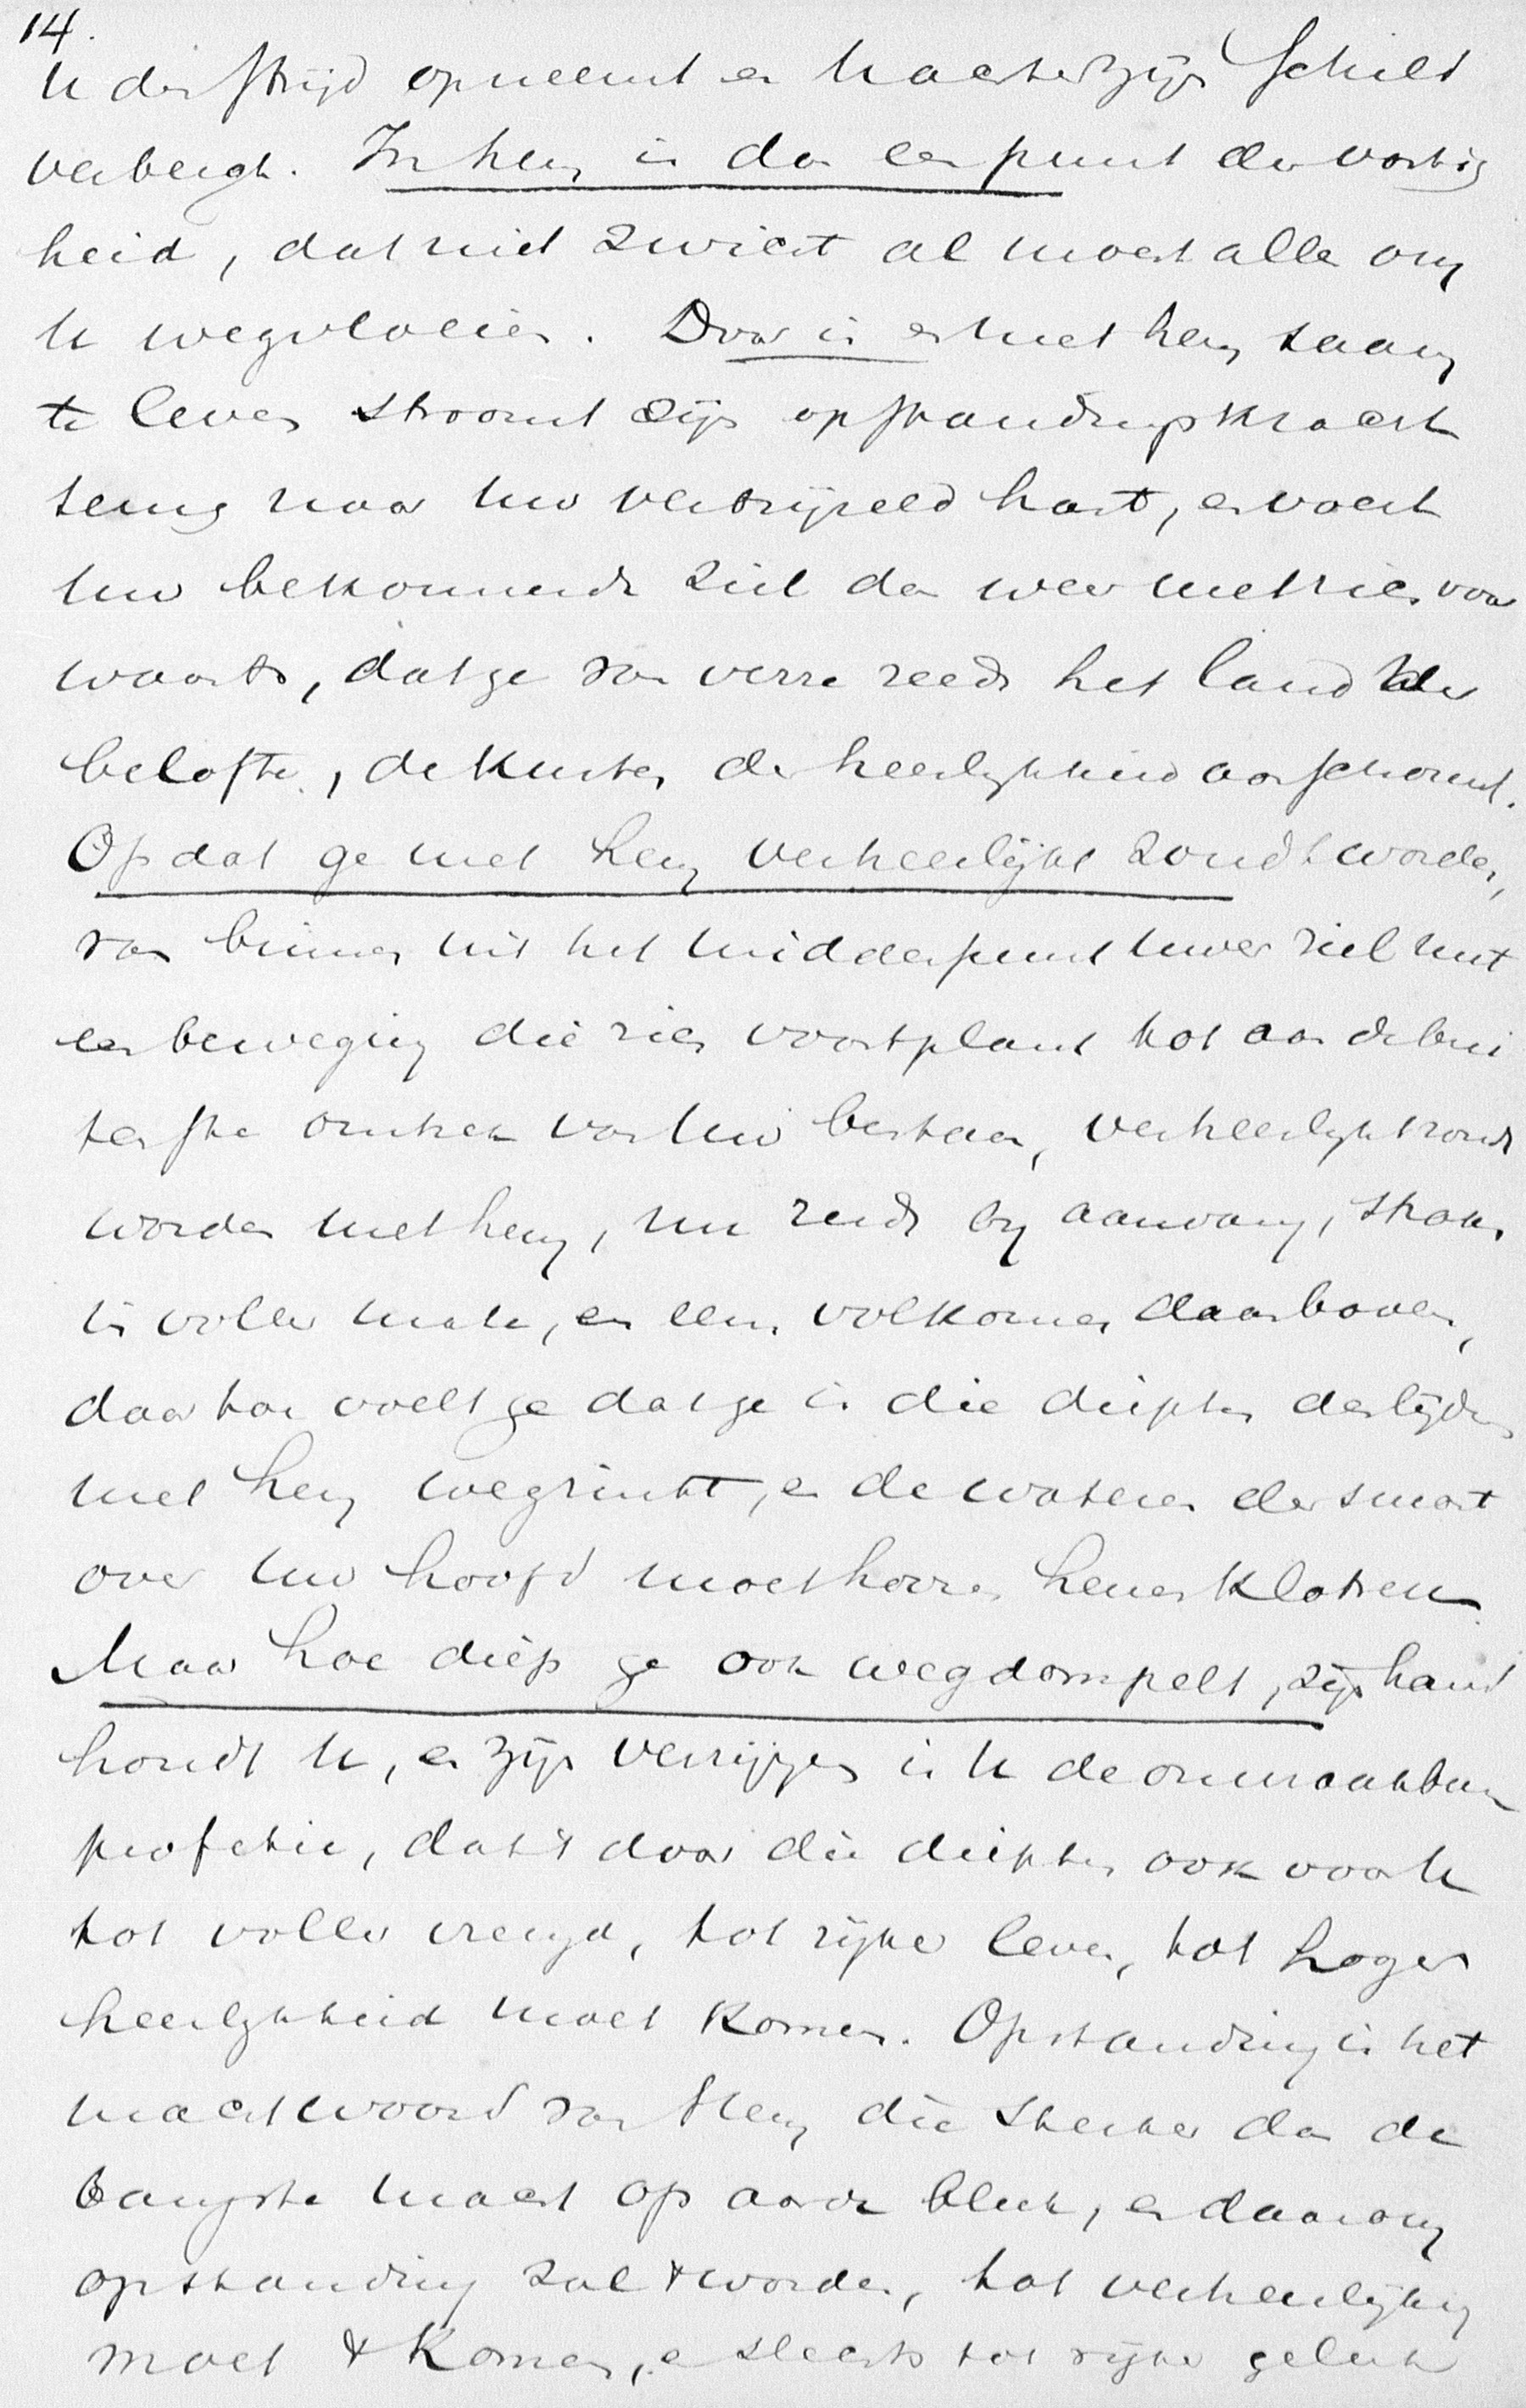 14.
U den strijd opneemt en U achter zijn schild
verbergt. In hem is dan een punt der vastig
heid, dat niet zwicht al moest alles om
U wegvloeien. Door in en met hem saam
te leven stroomt zijn opstandingskracht
terug naar Uw vertwijfeld hart, en voert
Uw bekommerde ziel dan weer met zich voor
waarts, dat ge van verre reeds het land der
belofte, de kusten der heerlijkheid aanschouwt.
Opdat ge met hem verheerlijkt zoudt worden,
van binnen uit het middenpunt uwer ziel met
een beweging die zich voortplant tot aan de bui
tenste omtrek van Uw bestaan, verheerlijkt zoudt
worden met hem, nu reeds bij aanvang, straks
in voller mate, en eens volkomen daarboven,
daartoe voelt ge dat ge in die diepten des lijdens
met hem wegzinkt, en de wateren der smart
over Uw hoofd moet horen henenklotsen
Maar hoe diep ge ook wegdompelt, zijn hand
houdt U, en zijn verrijzen is U de onwraakbare
profetie, dat 't door die diepten ook voor U
tot voller vreugd, tot rijker leven, tot hoger
heerlijkheid moet komen. Opstanding is het
machtwoord van Hem die sterker dan de
bangste macht op aarde bleek, en daarom
opstanding zal 't worden, tot verheerlijking
moet 't komen, en slechts tot rijker geluk